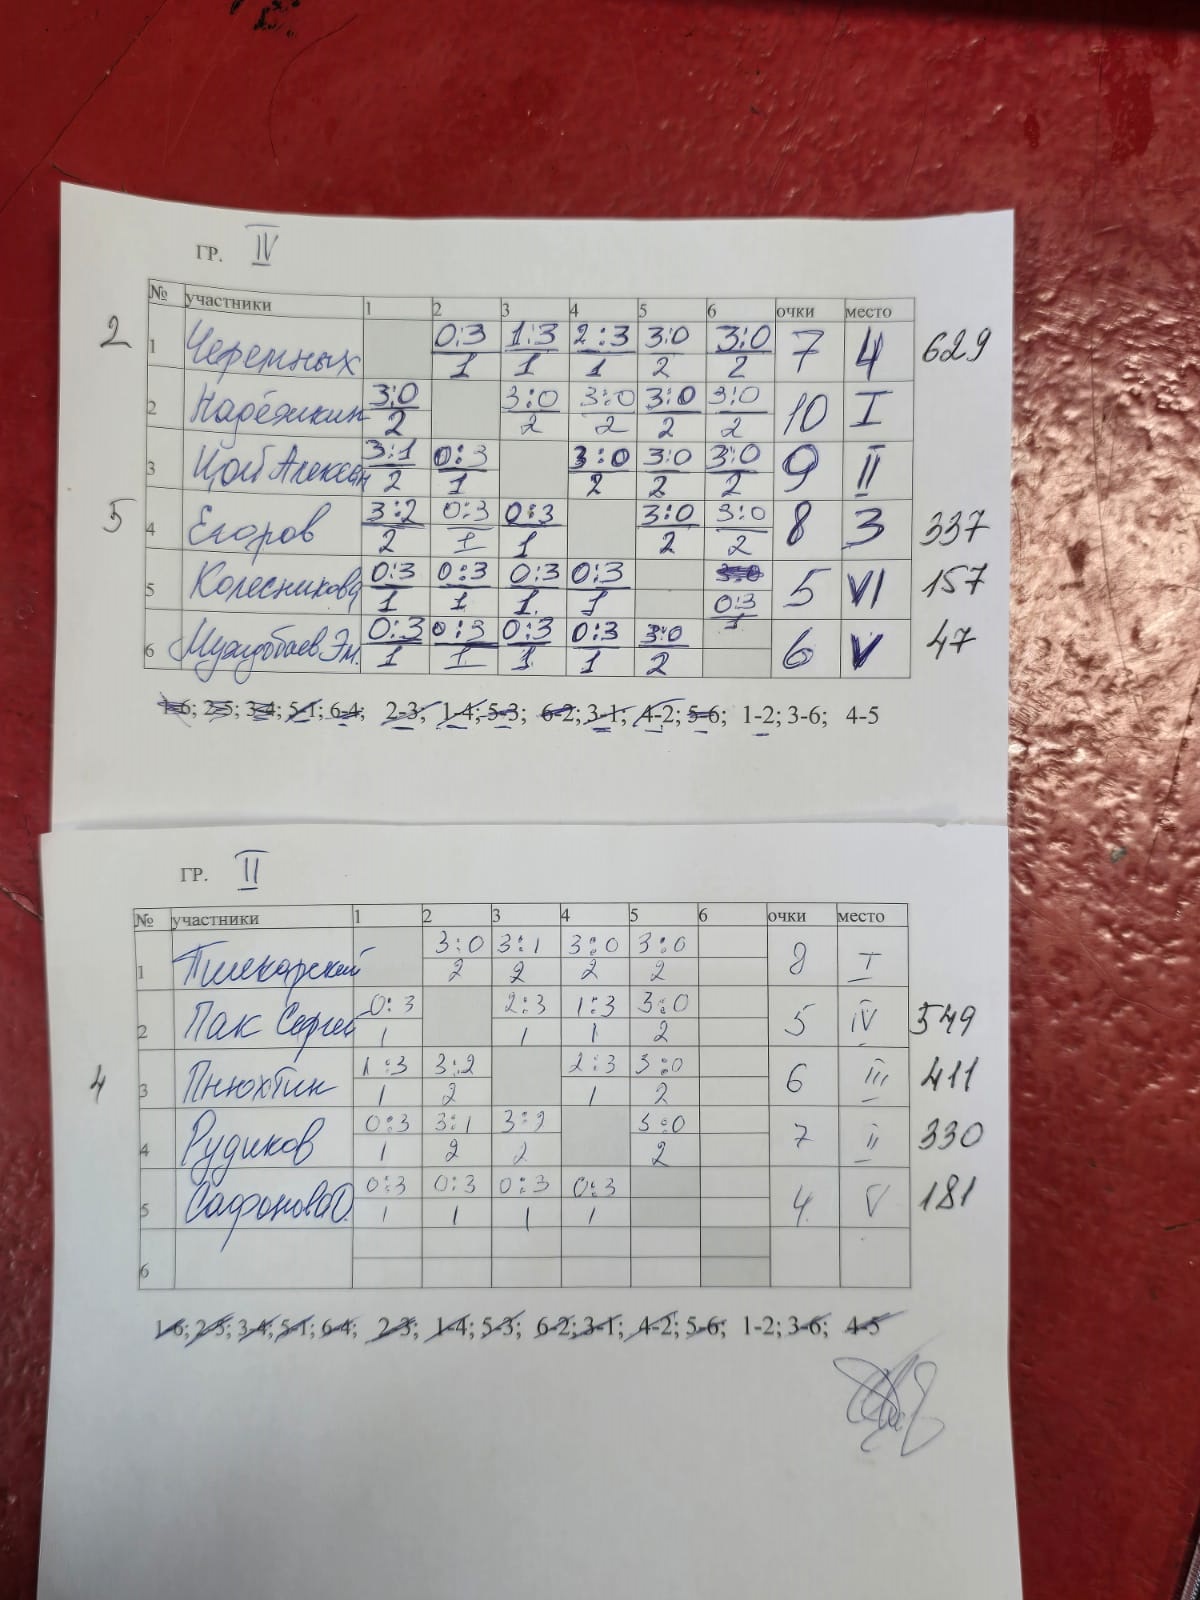 ГР. IV
№ участники 1 2 3 4 5 6 очки место
2 1 Черемных 0:3 1:3 2:3 3:0 3:0 7 4 629
1 1 1 2 2
2 Надёжкин 3:0 3:0 3:0 3:0 3:0 10 I
2 2 2 2 2
3 Цой Алексан 3:1 0:3 3:0 3:0 3:0 9 II
2 1 2 2 2
5 4 Егоров 3:2 0:3 0:3 3:0 3:0 8 3 337
2 1 1 2 2
5 Колесникова 0:3 0:3 0:3 0:3 3:0 5 VI 157
1 1 1 1 0:3
1
6 Эм. 0:3 0:3 0:3 0:3 3:0 6 V 47
1 1 1 1 2
1-6; 2-5; 3-4; 5-1; 6-4; 2-3; 1-4; 5-3; 6-2; 3-1; 4-2; 5-6; 1-2; 3-6; 4-5
ГР. II
№ участники 1 2 3 4 5 6 очки место
1 3:0 3:1 3:0 3:0 8 I
2 2 2 2
2 Пак Сергей 0:3 2:3 1:3 3:0 5 IV 549
1 1 1 2
4 3 Пнюхтин 1:3 3:2 2:3 3:0 6 III 411
1 2 1 2
4 Рудиков 0:3 3:1 3:2 3:0 7 II 330
1 2 2 2
5 Сафонова О. 0:3 0:3 0:3 0:3 4 V 181
1 1 1 1
6
1-6; 2-5; 3-4; 5-1; 6-4; 2-3; 1-4; 5-3; 6-2; 3-1; 4-2; 5-6; 1-2; 3-6; 4-5